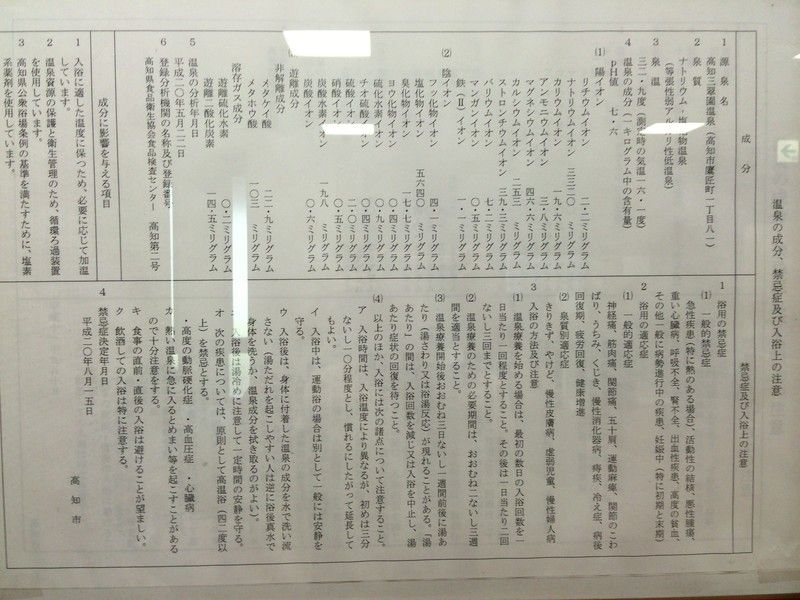 温泉の成分、禁忌症及び入浴上の注意
成分
1 源泉名
高知三翠園温泉（高知市鷹匠町一丁目八ー）
2 泉質
ナトリウム・塩化物温泉
（等張性弱アルカリ性低温泉）
3 泉温
三二・九度（測定時の気温一六・一度）
4 温泉の成分（一キログラム中の含有量）
pH値 七・六
(1) 陽イオン
リチウムイオン 二・二ミリグラム
ナトリウムイオン 三三二〇 ミリグラム
カリウムイオン 一九・六ミリグラム
アンモニウムイオン 三・八ミリグラム
マグネシウムイオン 四六・六ミリグラム
カルシウムイオン 二五三 ミリグラム
ストロンチウムイオン 三九・三ミリグラム
バリウムイオン 七・二ミリグラム
マンガンイオン 〇・五ミリグラム
鉄（Ⅱ）イオン 一・一ミリグラム
(2) 陰イオン
フッ化物イオン 四・一ミリグラム
塩化物イオン 五六四〇 ミリグラム
臭化物イオン 七・七ミリグラム
ヨウ化物イオン 〇・九ミリグラム
硫化水素イオン 〇・四ミリグラム
チオ硫酸イオン 〇・四ミリグラム
硫酸イオン 二・〇ミリグラム
硝酸イオン 〇・五ミリグラム
炭酸水素イオン 一九八 ミリグラム
炭酸イオン 〇・六ミリグラム
遊離成分
非解離成分
メタケイ酸 二二・九ミリグラム
メタホウ酸 一〇三 ミリグラム
溶存ガス成分
遊離硫化水素 〇・二ミリグラム
遊離二酸化炭素 一四・五ミリグラム
5 温泉の分析年月日
平成二〇年五月二二日
6 登録分析機関の名称及び登録番号
高知県食品衛生協会食品検査センター 高知第二号
成分に影響を与える項目
1 入浴に適した温度に保つため、必要に応じて加温
しています。
2 温泉資源の保護と衛生管理のため、循環ろ過装置
を使用しています。
3 高知県公衆浴場条例の基準を満たすために、塩素
系薬剤を使用しています。
禁忌症及び入浴上の注意
1 浴用の禁忌症
(1) 一般的禁忌症
急性疾患（特に熱のある場合）、活動性の結核、悪性腫瘍、
重い心臓病、呼吸不全、腎不全、出血性疾患、高度の貧血、
その他一般に病勢進行中の疾患、妊娠中（特に初期と末期）
2 浴用の適応症
(1) 一般的適応症
神経痛、筋肉痛、関節痛、五十肩、運動麻痺、関節のこわ
ばり、うちみ、くじき、慢性消化器病、痔疾、冷え症、病後
回復期、疲労回復、健康増進
(2) 泉質別適応症
きりきず、やけど、慢性皮膚病、虚弱児童、慢性婦人病
3 入浴の方法及び注意
(1) 温泉療養を始める場合は、最初の数日の入浴回数を一
日当たり一回程度とすること。その後は一日当たり二回
ないし三回までとすること。
(2) 温泉療養のための必要期間は、おおむね二ないし三週
間を適当とすること。
(3) 温泉療養開始後おおむね三日ないし一週間前後に湯あ
たり（湯さわり又は浴湯反応）が現れることがある。「湯
あたり」の間は、入浴回数を減じ又は入浴を中止し、湯
あたり症状の回復を待つこと。
(4) 以上のほか、入浴には次の諸点について注意すること。
ア 入浴時間は、入浴温度により異なるが、初めは三分
ないし一〇分程度とし、慣れるにしたがって延長して
もよい。
イ 入浴中は、運動浴の場合は別として一般には安静を
守る。
ウ 入浴後は、身体に付着した温泉の成分を水で洗い流
さない（湯ただれを起こしやすい人は逆に浴後真水で
身体を洗うか、温泉成分を拭き取るのがよい）。
エ 入浴後は湯冷めに注意して一定時間の安静を守る。
オ 次の疾患については、原則として高温浴（四二度以
上）を禁忌とする。
・高度の動脈硬化症 ・高血圧症 ・心臓病
カ 熱い温泉に急に入るとめまい等を起こすことがある
ので十分注意をする。
キ 食事の直前・直後の入浴は避けることが望ましい。
ク 飲酒しての入浴は特に注意する。
4 禁忌症決定年月日
平成二〇年八月一五日
高知市